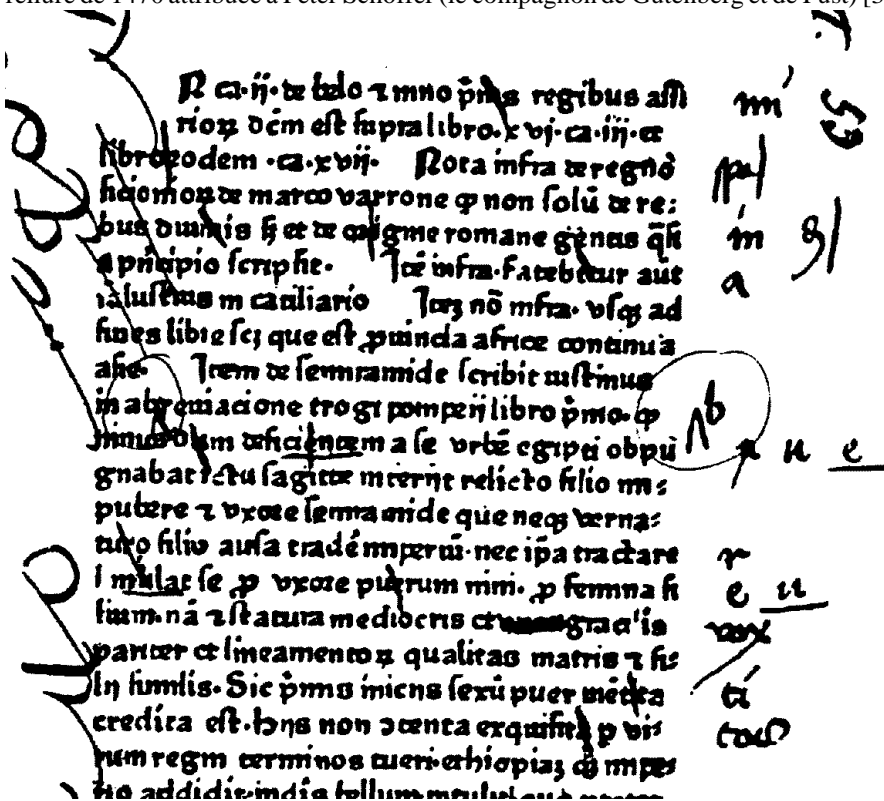 reliure de 1470 attribuée à Peter Schöffer (le compagnon de Gutenberg et de Fust) [3
ca·ij· de belo ⁊ p̄mis regibus assi
rioꝝ dc̄m est supra libro·xvj·ca·iij·et
libro eodem ·ca·xvij· Nota infra de regno
de marco varrone ꝙ non solū de re:
bus diuinis et de origine romane gentis
a principio scripsit· Itē infra·Fatebitur aut
salustius in catiliario Iteꝫ nō infra· vsqꝫ ad
fines libie scꝫ que est ꝓuincia africe continua
asie· Item de semiramide scribit iustinus
in abreuiacione trogi pompeij libro p̄mo· ꝙ
deficientem a se vrbē egipti obpu
gnabat ictu sagitte interijt relicto filio im:
pubere ⁊ vxore semiramide que neqꝫ
turo filio ausa tradē imperiū·nec ip̄a tractare
simulat se ꝓ vxore puerum nini· ꝓ femina fi
lium·nā ⁊ statura mediocris et graciꝉis
pariter et lineamentoꝝ qualitas matris ⁊ fi:
lij similis· Sic p̄mis iniciis sexū puer
credita est· non ɔtenta exquisita p vi:
rum regni terminos tueri·ethiopiaꝫ impe
rio addidit·indis bellum intulit
m
a
n e
r
e u
ti